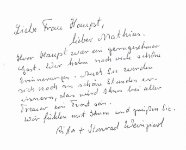 Liebe Frau Haupt,
lieber Mathias.
Herr Haupt war ein gerngesehener
Gast. Wir haben noch viele schöne
Erinnerungen. Auch Sie werden
sich noch an schöne Stunden er-
innern, das wird Ihnen bei aller
Trauer ein Trost sein.
Wir fühlen mit Ihnen und grüßen Sie.
+ Konrad